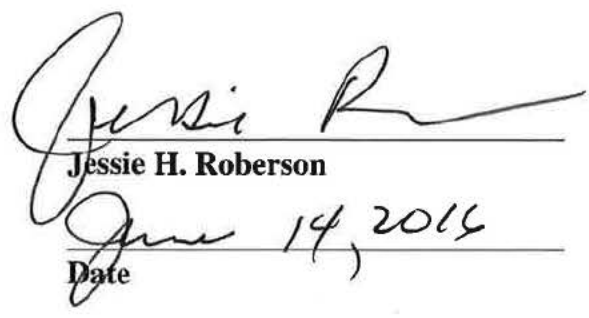 Jessie R
Jessie H. Roberson
June 14, 2016
Date